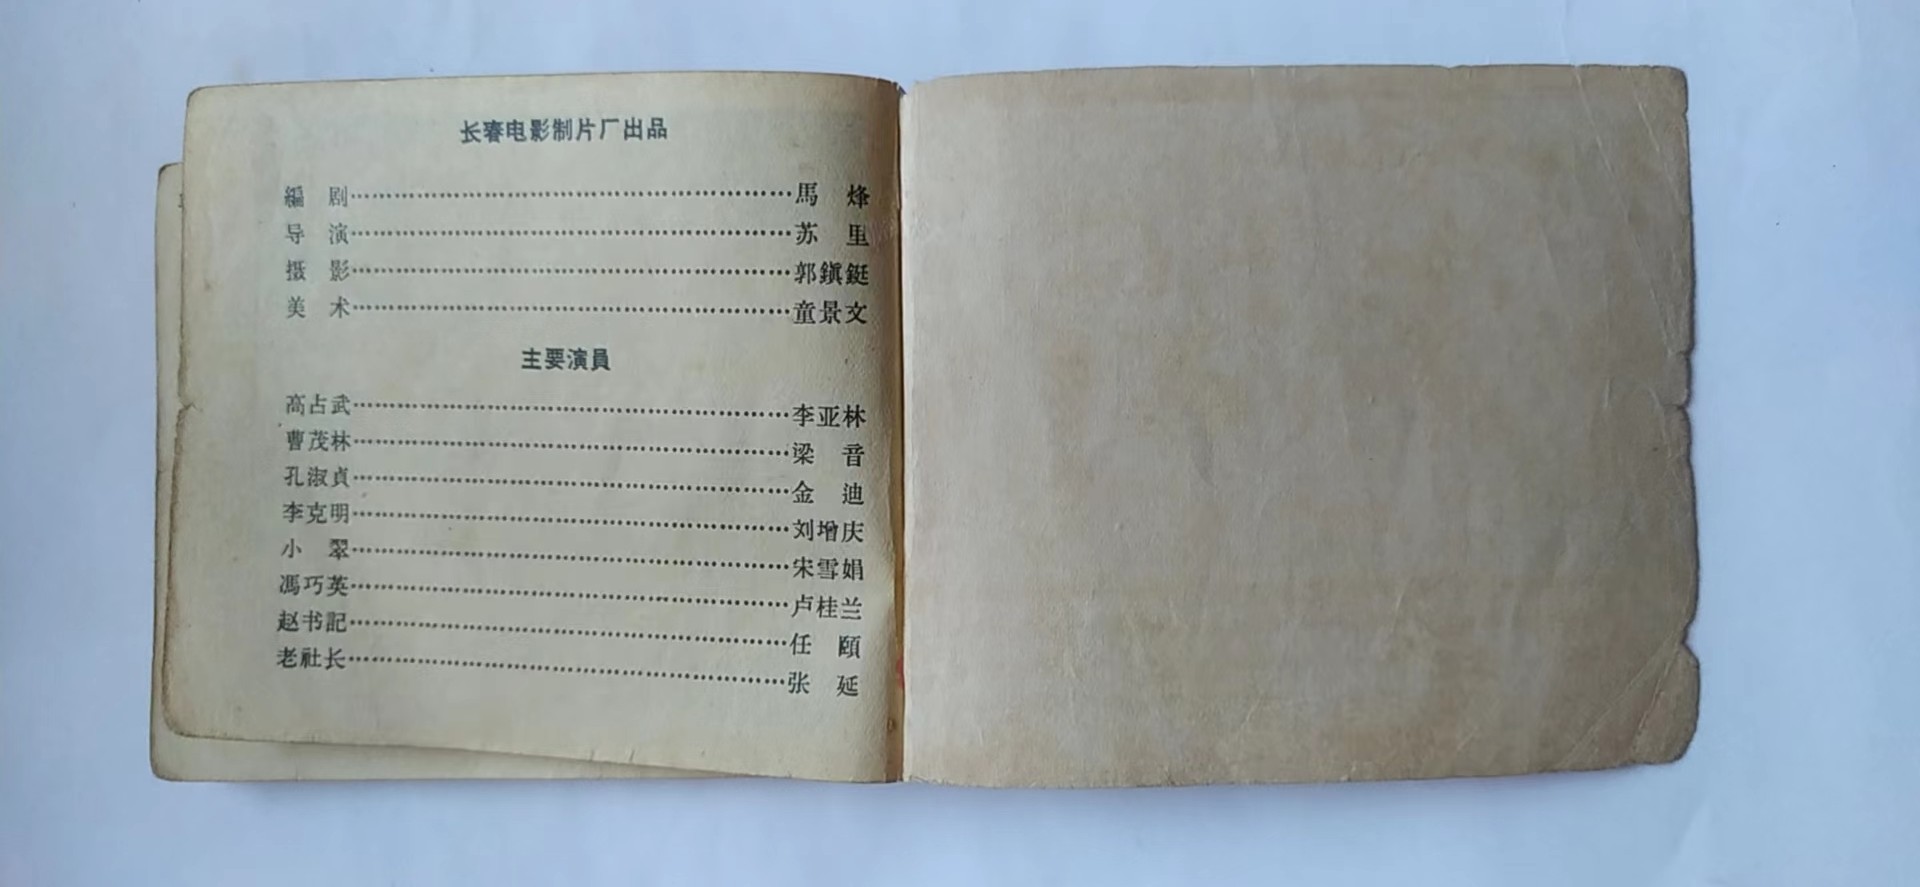 长春电影制片厂出品
編 剧……马 烽
导 演……苏 里
摄 影……郭鎭鋌
美 术……童景文
主要演員
高占武……李亚林
曹茂林……梁 音
孔淑贞……金 迪
李克明……刘增庆
小 翠……宋雪娟
馮巧英……卢桂兰
赵书記……任 頤
老社长……张 延